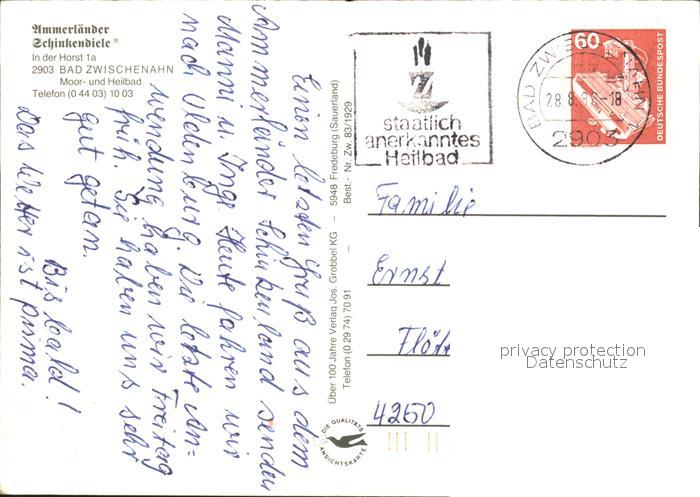 Ammerländer
Schinkendiele®
In der Horst 1a
2903 BAD ZWISCHENAHN
Moor- und Heilbad
Telefon (0 44 03) 10 03
Einen letzten Gruß aus dem
Ammerländer Schinkenland senden
Manni u. Inge. Heute fahren wir
nach Oldenburg. Die letzte An-
wendung haben wir Freitag
früh. Sie haben uns sehr
gut getan.
Bis bald!
Das Wetter ist prima.
Über 100 Jahre Verlag Jos. Grobbel KG – 5948 Fredeburg (Sauerland)
Telefon (0 29 74) 70 91 – Best.-Nr. Zw. 83/1929
DIE QUALITÄTS
ANSICHTSKARTE
staatlich
anerkanntes
Heilbad
BAD ZWISCHENAHN
28.8. -18
2903
60
DEUTSCHE BUNDESPOST
Familie
Ernst
4250
privacy protection
Datenschutz